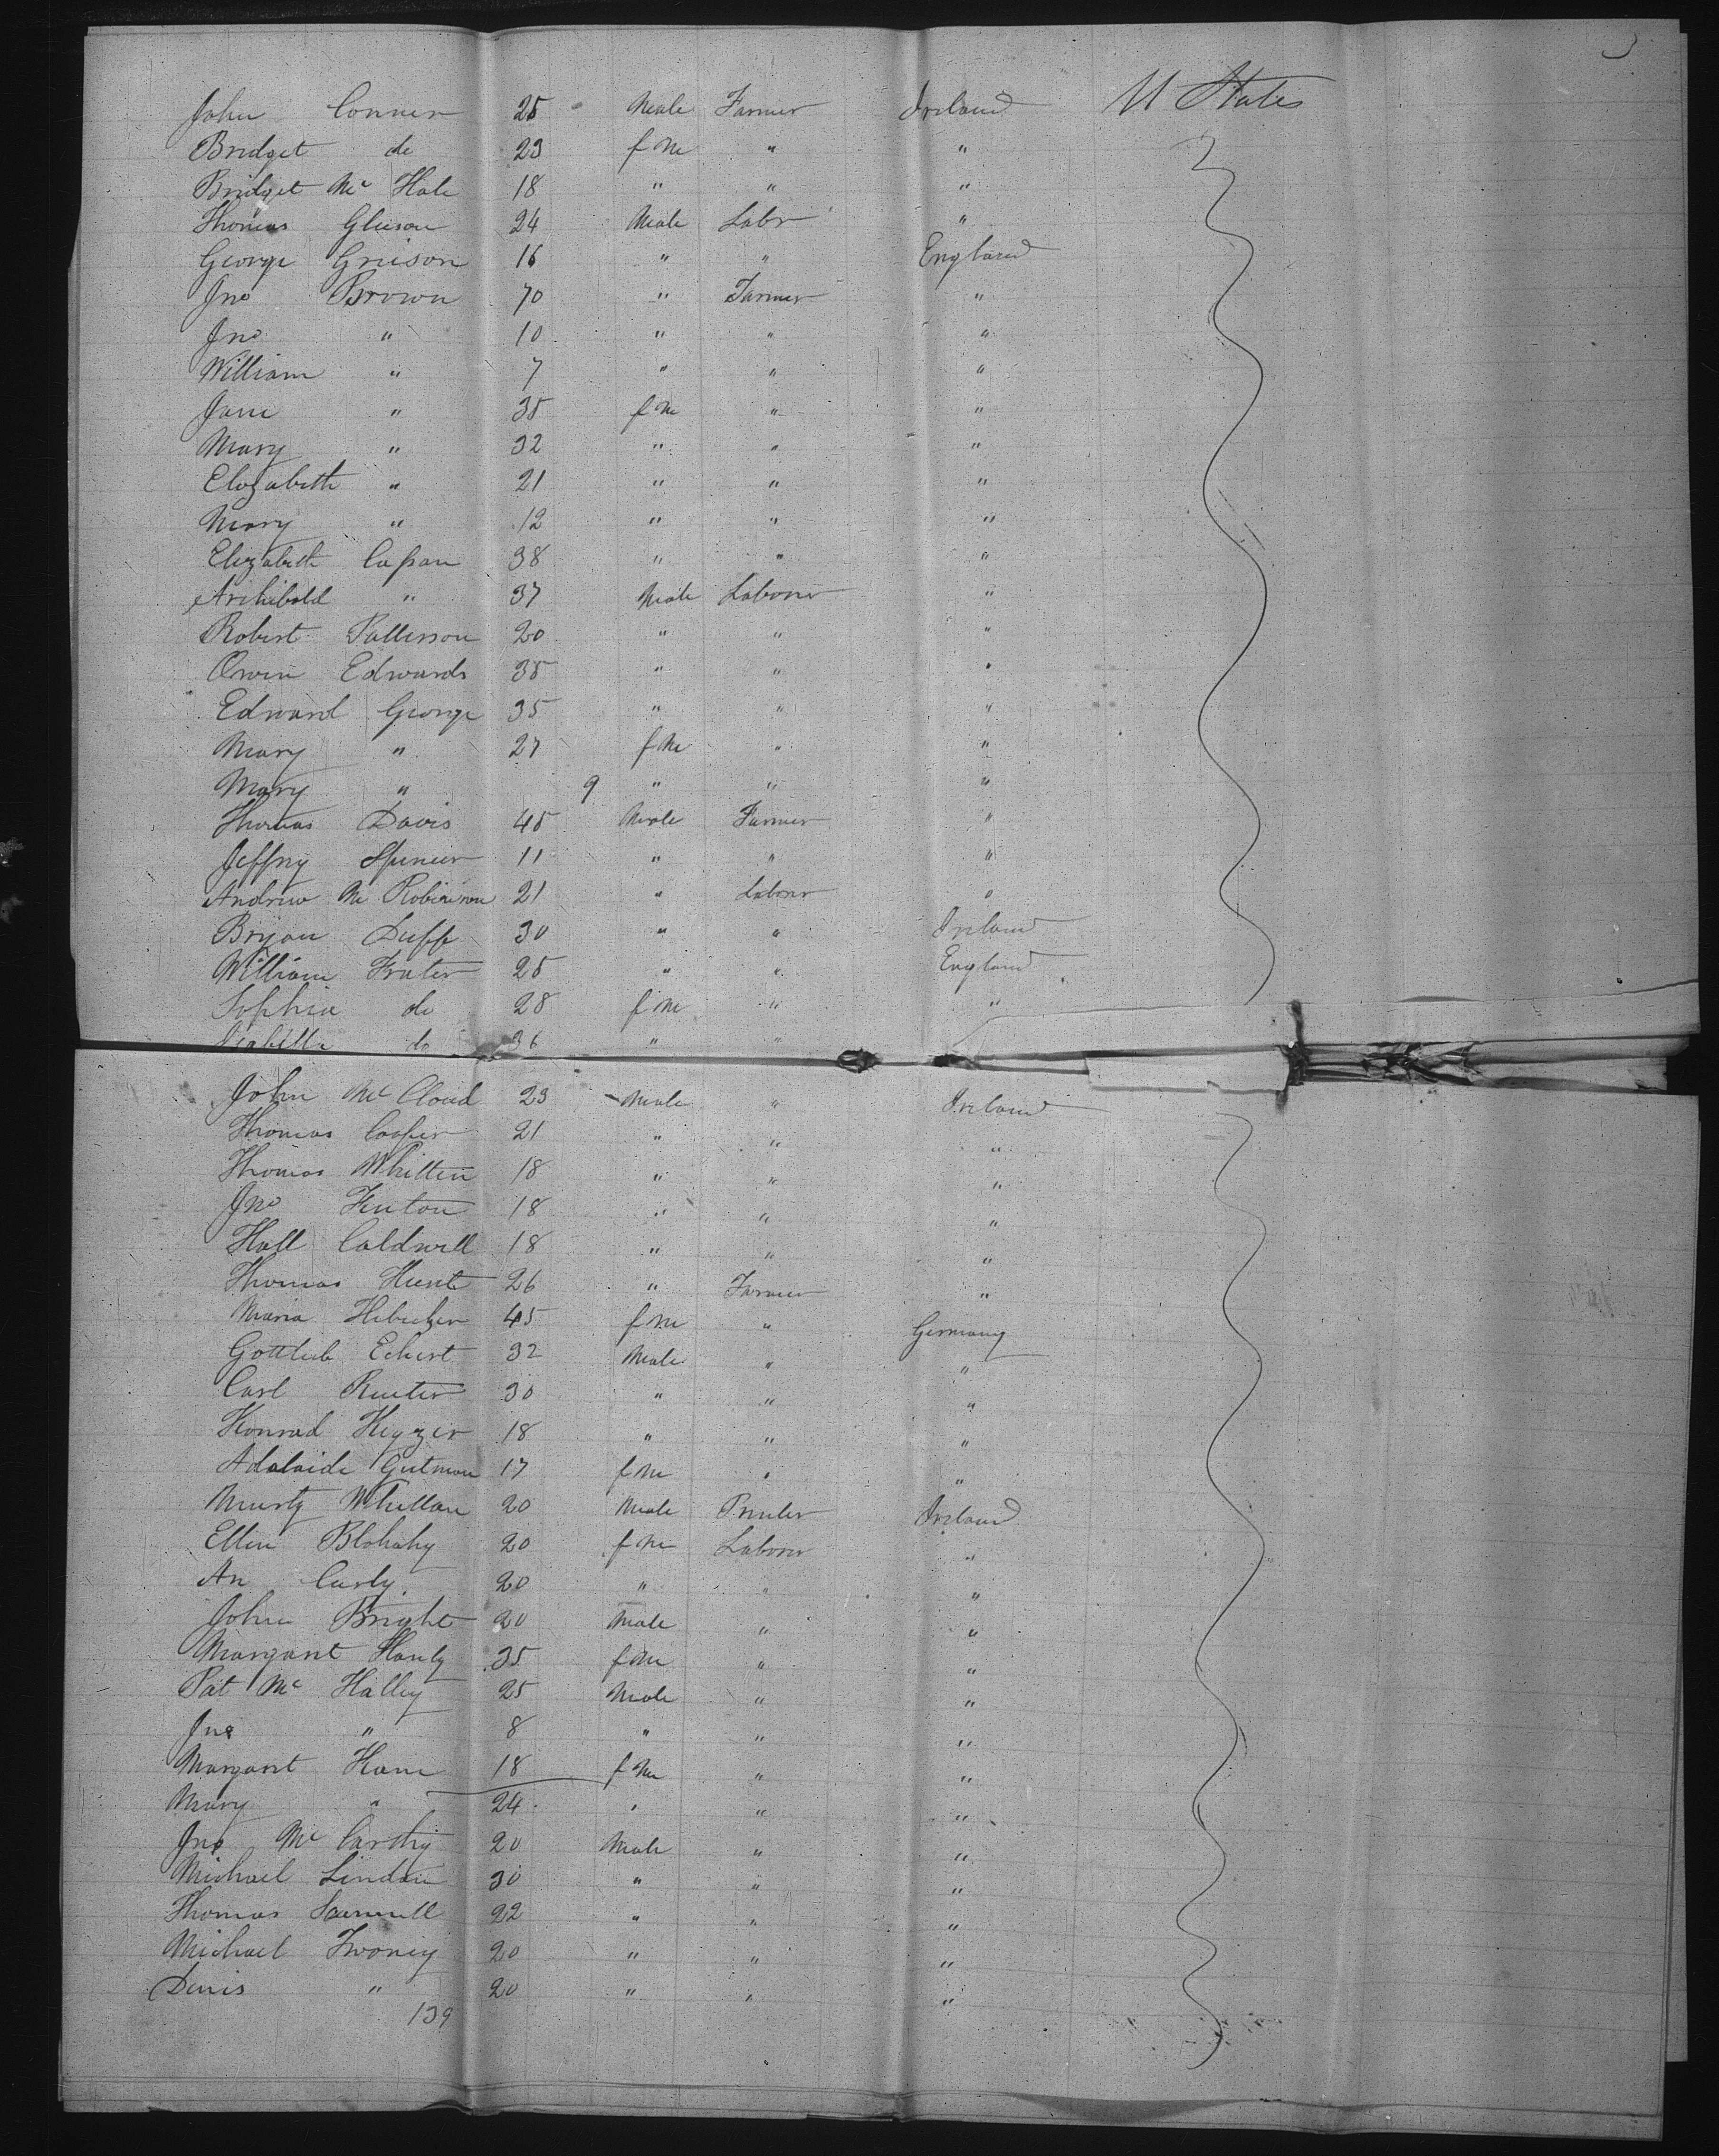 3
John Conner 25 Male Farmer Ireland U States
Bridget do 23 f M " "
Bridget Mc Hale 18 " " "
Thomas Gleeson 24 Male Labr "
George Grieson 16 " " England
Jno Brown 70 " Farmer "
Jno " 10 " " "
William " 7 " " "
Jane " 35 f M " "
Mary " 32 " " "
Elizabeth " 21 " " "
Mary " 12 " " "
Elizabeth 38 " " "
Archibald " 37 Male Laborer "
Robert Patterson 20 " " "
Owen Edwards 35 " " "
Edward George 35 " " "
Mary " 27 f M " "
Mary " 9 " " "
Thomas Davis 45 Male Farmer "
Jeffry Spencer 11 " " "
Andrew Mc Robinson 21 " Laborer "
Bryan Duff 30 " " Ireland
William Frater 25 " " England
Sophia do 28 f M " "
Isabella do 36 " "
John Mc Cloud 23 Male " Ireland
Thomas Cooper 21 " " "
Thomas Whitten 18 " " "
Jno Fenton 18 " " "
Hall Caldwell 18 " " "
Thomas Hunt 26 " Farmer "
Maria 45 f M " Germany
Gottlieb Echert 32 Male " "
Carl Reuter 30 " " "
Konrad Keyzer 18 " " "
Adalaide Gutman 17 f M " "
Whellan 20 Male Printer Ireland
Ellen 20 f M Laborer "
An Carly 20 " " "
John Bright 20 Male " "
Margaret Hanly 35 f M " "
Pat Mc Halley 25 Male " "
Jno " 8 " " "
Margaret Hane 18 f M " "
Mary " 24 " " "
Jno Mc Carthy 20 Male " "
Michael Lindon 30 " " "
Thomas 22 " " "
Michael Twoney 20 " " "
Denis " 20 " " "
139